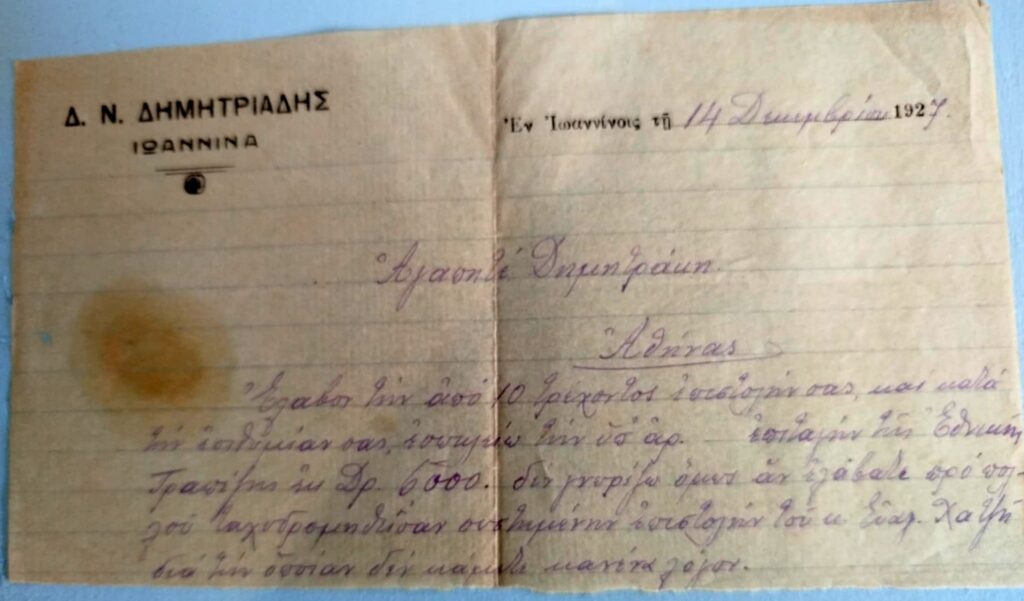 Δ. Ν. ΔΗΜΗΤΡΙΑΔΗΣ
ΙΩΑΝΝΙΝΑ
Ἐν Ἰωαννίνοις τῇ 14 Δεκεμβρίου 1927.
Ἀγαπητέ Δημητράκη
Ἀθήνας
Ἔλαβον τήν ἀπό 10 τρέχοντος ἐπιστολήν σας, καί κατά
τήν ἐπιθυμίαν σας, ἐσωκλείω τήν ὑπ' ἀρ. ἐπιταγήν τῆς Ἐθνικῆς
Τραπέζης ἐκ Δρ. 6000. δέν γνωρίζω ὅμως ἄν ἐλάβατε πρό
ταχυδρομηθεῖσαν συστημένην ἐπιστολήν τοῦ κ Εὐαγ. Χατζῆ
διά τήν ὁποίαν δέν κάμετε κανένα λόγον.